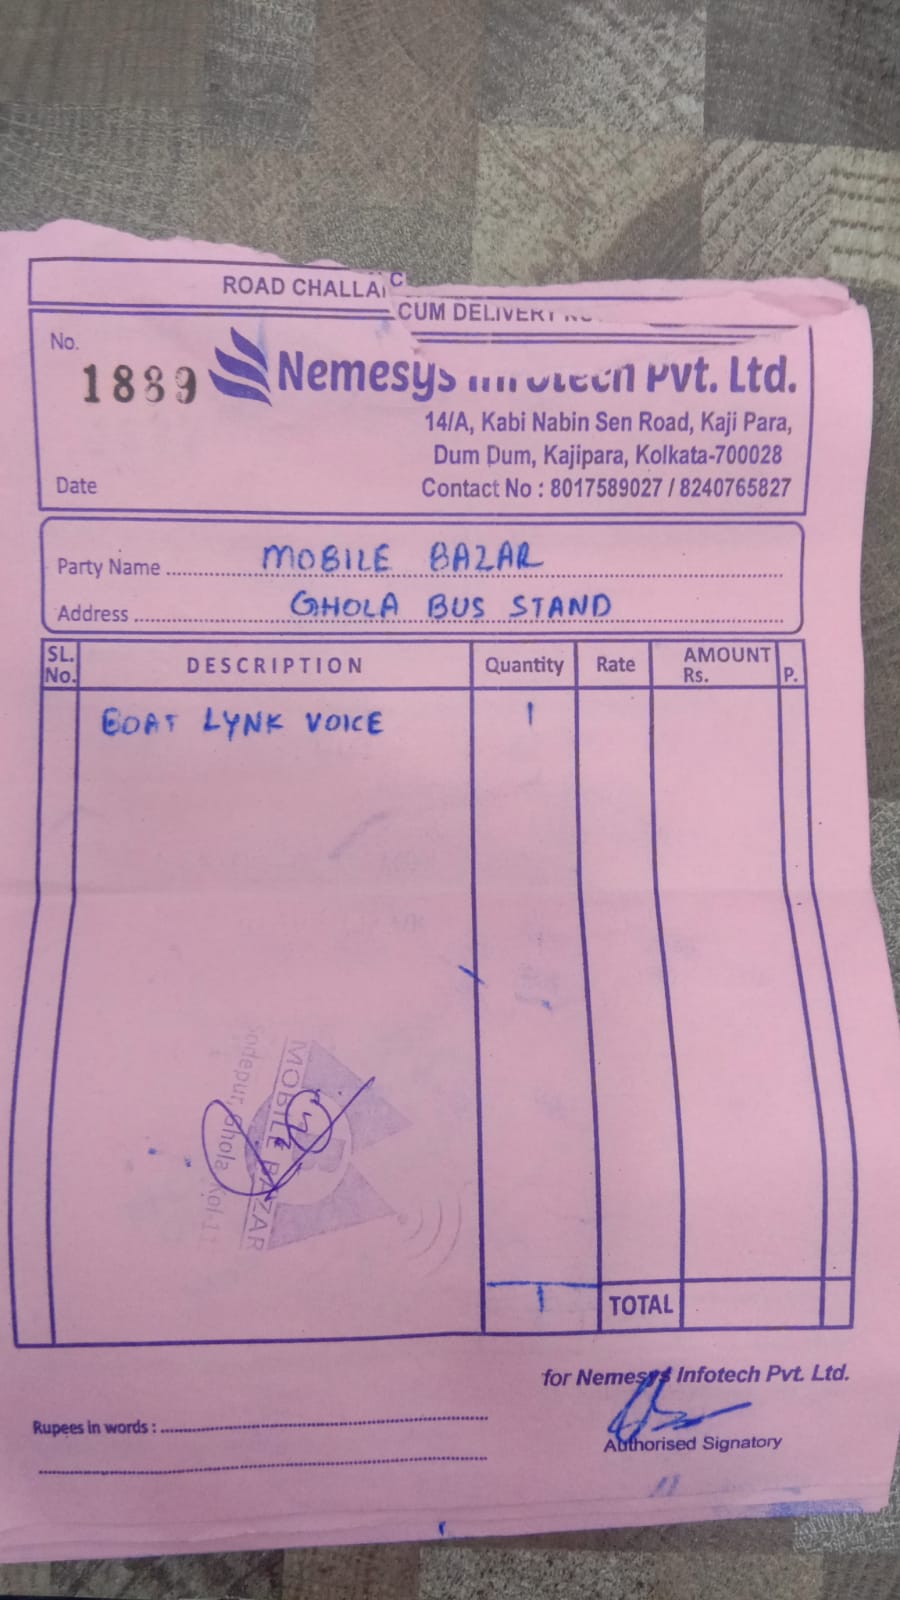 ROAD CHALLAN
CUM DELIVERY
No.
1889
Nemesys Infotech Pvt. Ltd.
14/A, Kabi Nabin Sen Road, Kaji Para,
Dum Dum, Kajipara, Kolkata-700028
Date
Contact No : 8017589027 / 8240765827
Party Name MOBILE BAZAR
Address GHOLA BUS STAND
SL. No. DESCRIPTION Quantity Rate AMOUNT Rs. P.
BOAT LYNK VOICE 1
MOBILE BAZAR
Sodepur, Ghola
1 TOTAL
for Nemesys Infotech Pvt. Ltd.
Rupees in words :
Authorised Signatory